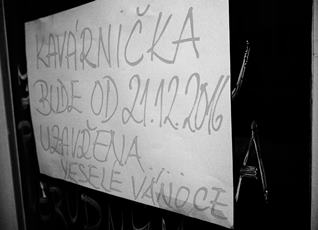 KAVÁRNIČKA
BUDE OD 21.12.2016
UZAVŘENA
VESELÉ VÁNOCE